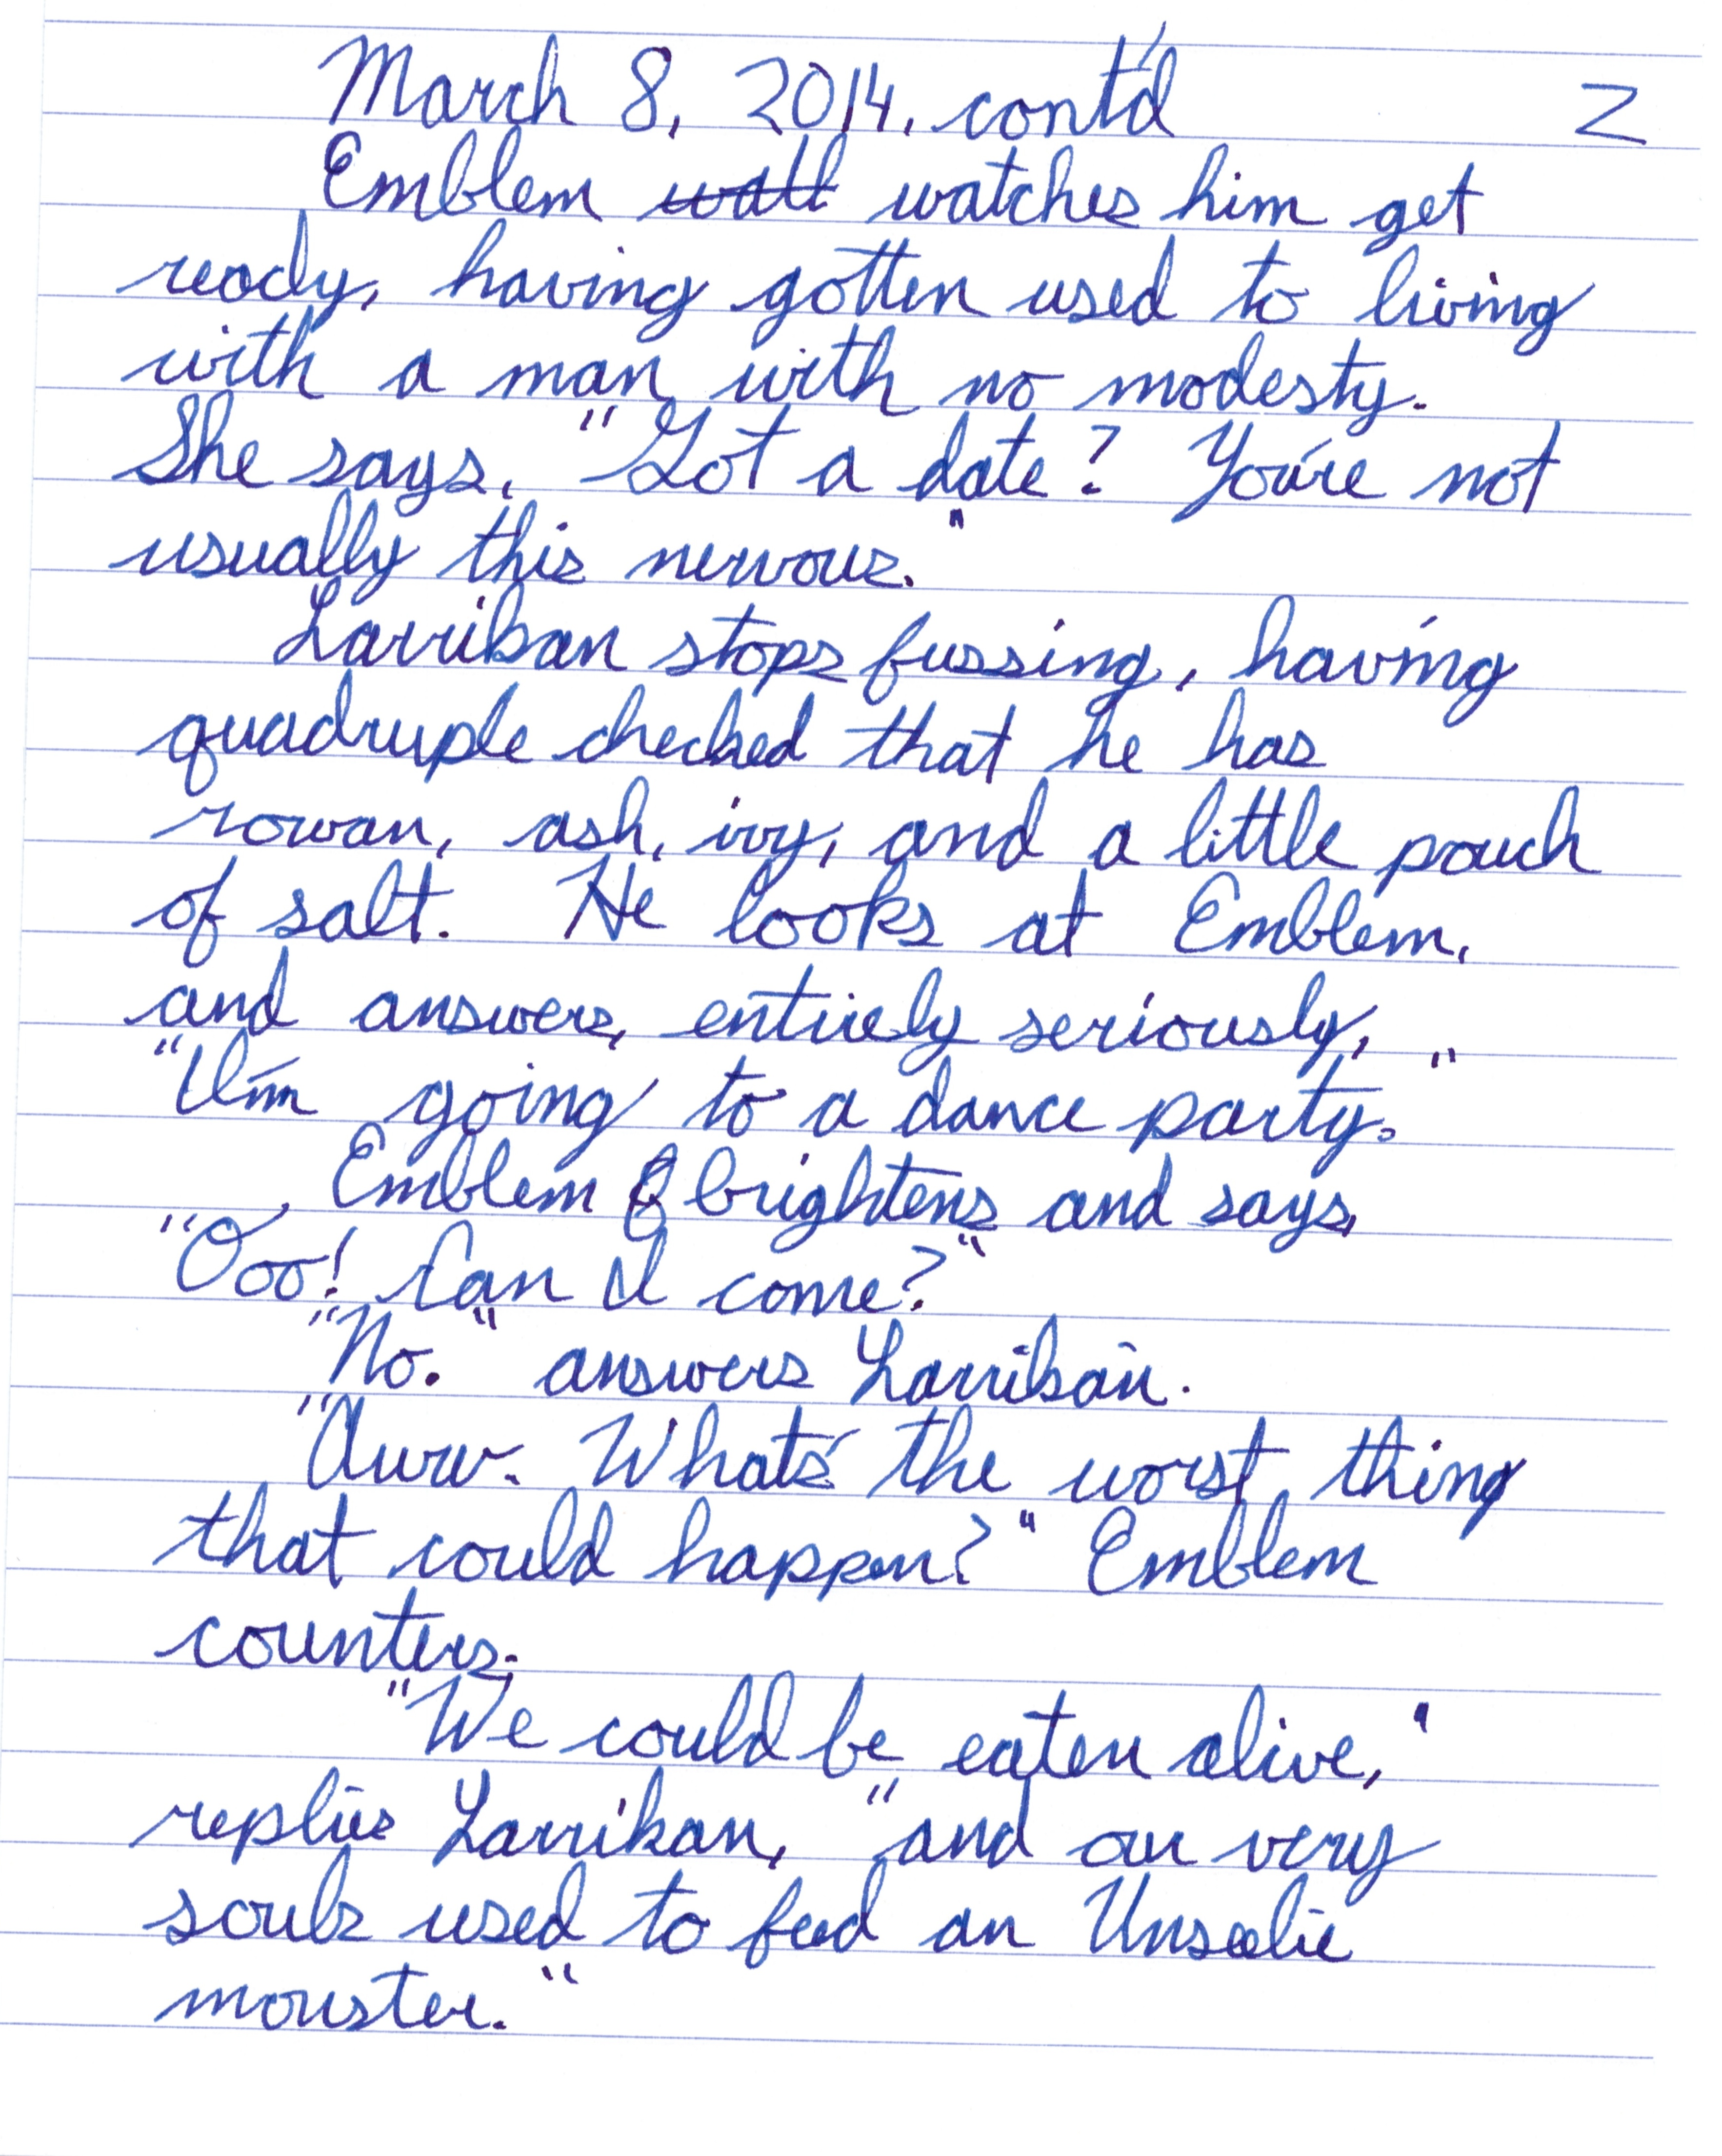 March 8, 2014, cont'd 2
Emblem watt watches him get
ready, having gotten used to living
with a man with no modesty.
She says, "Got a date? You're not
usually this nervous."
Larrikan stops fussing, having
quadruple checked that he has
rowan, ash, ivy, and a little pouch
of salt. He looks at Emblem,
and answers, entirely seriously,
"I'm going to a dance party."
Emblem brightens and says,
"Ooo! Can I come?"
"No." answers Larrikan.
"Aww. What's the worst thing
that could happen?" Emblem
counters.
"We could be eaten alive,"
replies Larrikan, "and our very
souls used to feed an Unseelie
monster."